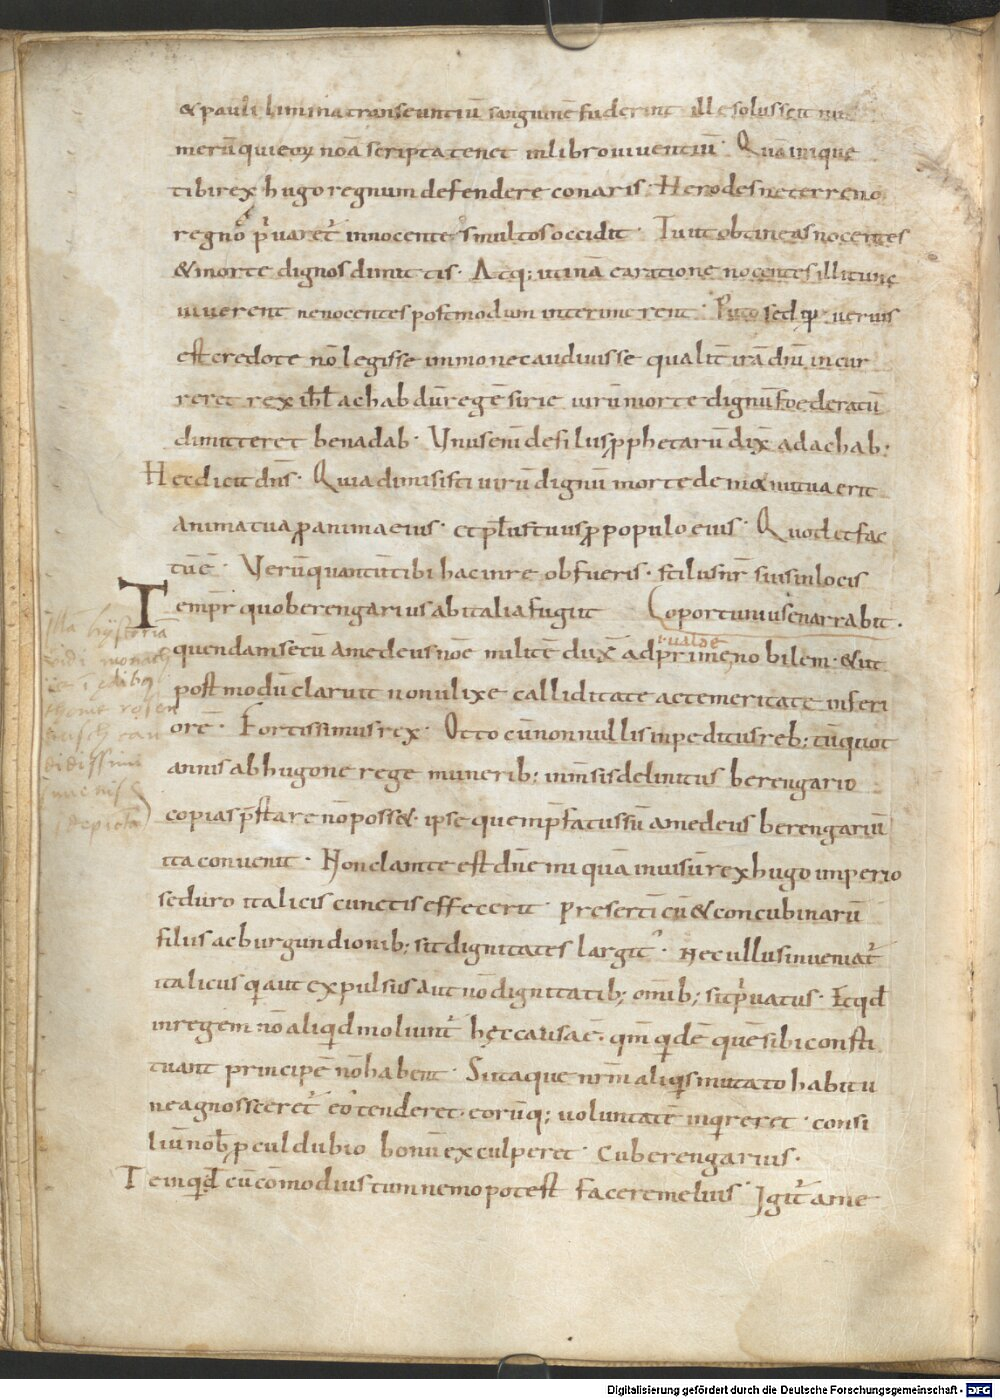 & pauli limina transeuntiū sanguinē fuderint ille solus scit nu
merū qui eoꝝ noā scripta tenet in libro viventiū · Quā inique
tibi rex hugo regnum defendere conaris · Herodes ne terreno
regno p̄varet̄ innocentes multos occidit · Tu ut obtineas nocentes
& morte dignos dimittis · Atq; utinā ea ratione nocentes illi tunc
viverent ne nocentes postmodum interimerent · Puto sed
est credo te nō legisse immo nec audivisse qualit̄ irā dn̄i incur
reret rex isrl̄ achab dū regē sirie virū morte dignū foederatū
dimitteret benadab · Unus enī de filiis ꝓphetarū dix̄ ad achab ·
Hec dicit dn̄s · Quia dimisisti virū dignū morte de manu tua erit
anima tua ꝓ anima eius · et popl̄us tuus ꝓ populo eius · Quod et fac
tū ē · Verū quantū tibi hac in re obfueris · stilus nr̄ suis in locis
Tempr̄ quo berengarius ab italia fugiit oportunius enarrabit ·
quendam secū Amedeus noē militē dux̄ adprime nobilem · & ut
valde
postmodū claruit non ulixe calliditate ac temeritate inferi
orē · Fortissimus rex · Otto cū nonnullis impeditus reb; tū quot
annis ab hugone rege munerib; inm̄sis delinitus berengario
copias p̄stare nō poss& · ipse quem p̄fatus sū amedeus berengariū
ita convenit · Non clam te est dn̄e mi quā invisū rex hugo imperio
se duro italicis cunctis effecerit presertī cū & concubinarū
filiis ac burgundionib; sit dignitates largit᷒ · nec ullus inveniat̄
italicus qi aut expulsus aut nō dignitatib; omīb; sit p̄vatus · Et qd
in regem nō aliqid moliunt̄ hęc causa ē · qm̄ qidē quē sibi consti
tuant principē nō habent · Si itaque nr̄m aliqis mutato habitu
ne agnosceret̄ eo tenderet · eorūq; voluntatē inqireret · consi
liū nob̄ ꝓcul dubio bonū exculperet · Cui berengarius ·
Te inqid cū cōmodius tum nemo potest facere melius · Igit̄ ame
Illā hystoriā
vidi monach
Digitalisierung gefördert durch die Deutsche Forschungsgemeinschaft - DFG